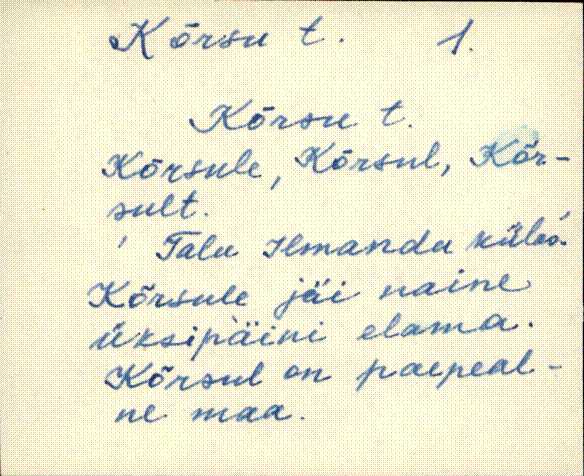 Kõrsu t. 1.
Kõrsu t.
Kõrsule, Kõrsul, Kõr-
sult.
Talu Ilmandu külas.
Kõrsule jäi naine
üksipäini elama.
Kõrsul on paepeal-
ne maa.